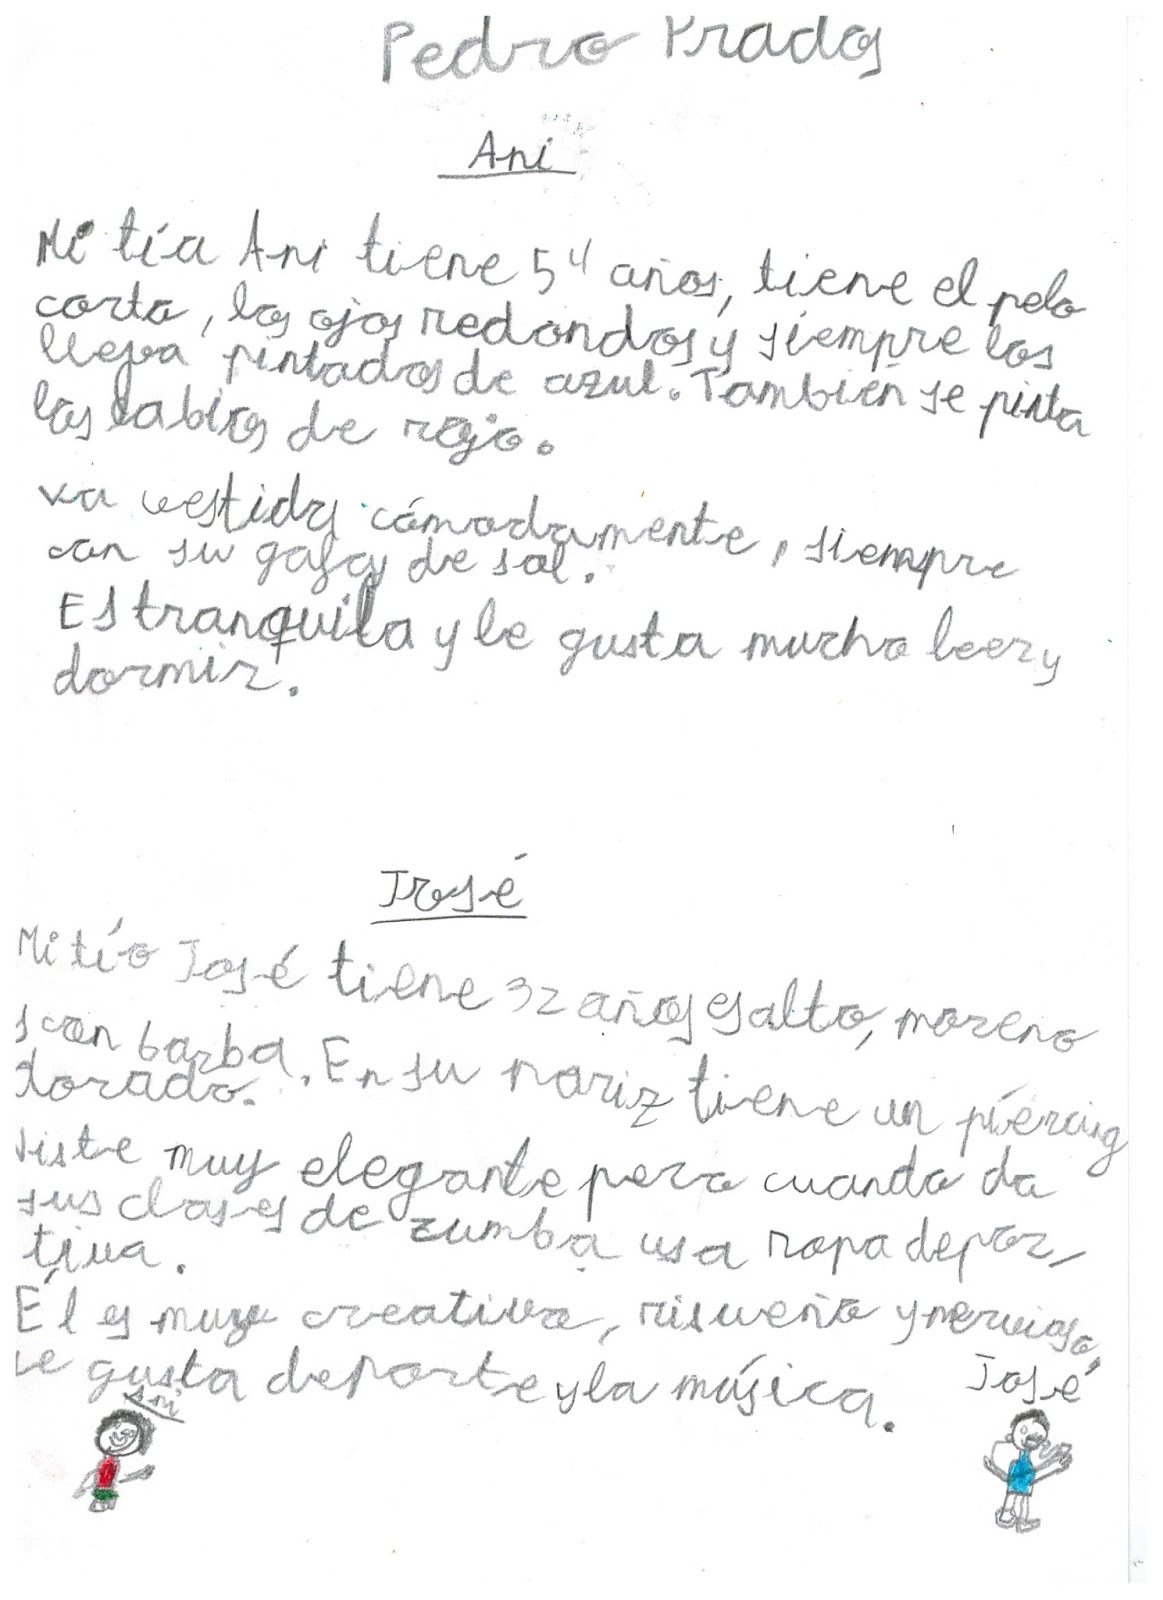 Pedro Prados
Ani
Mi tía Ani tiene 54 años, tiene el pelo
corto, los ojos redondos y siempre los
lleva pintados de azul. También se pinta
los labios de rojo.
Va vestida cómodamente, siempre
con su gafas de sol.
Es tranquila y le gusta mucho leer y
dormir.
José
Mi tío José tiene 32 años es alto, moreno
y con barba. En su nariz tiene un piércing
dorado.
Viste muy elegante pero cuando da
sus clases de zumba usa ropa depor-
tiva.
Él es muy creativo, risueño y nervioso,
le gusta deporte y la música.
Ani
José